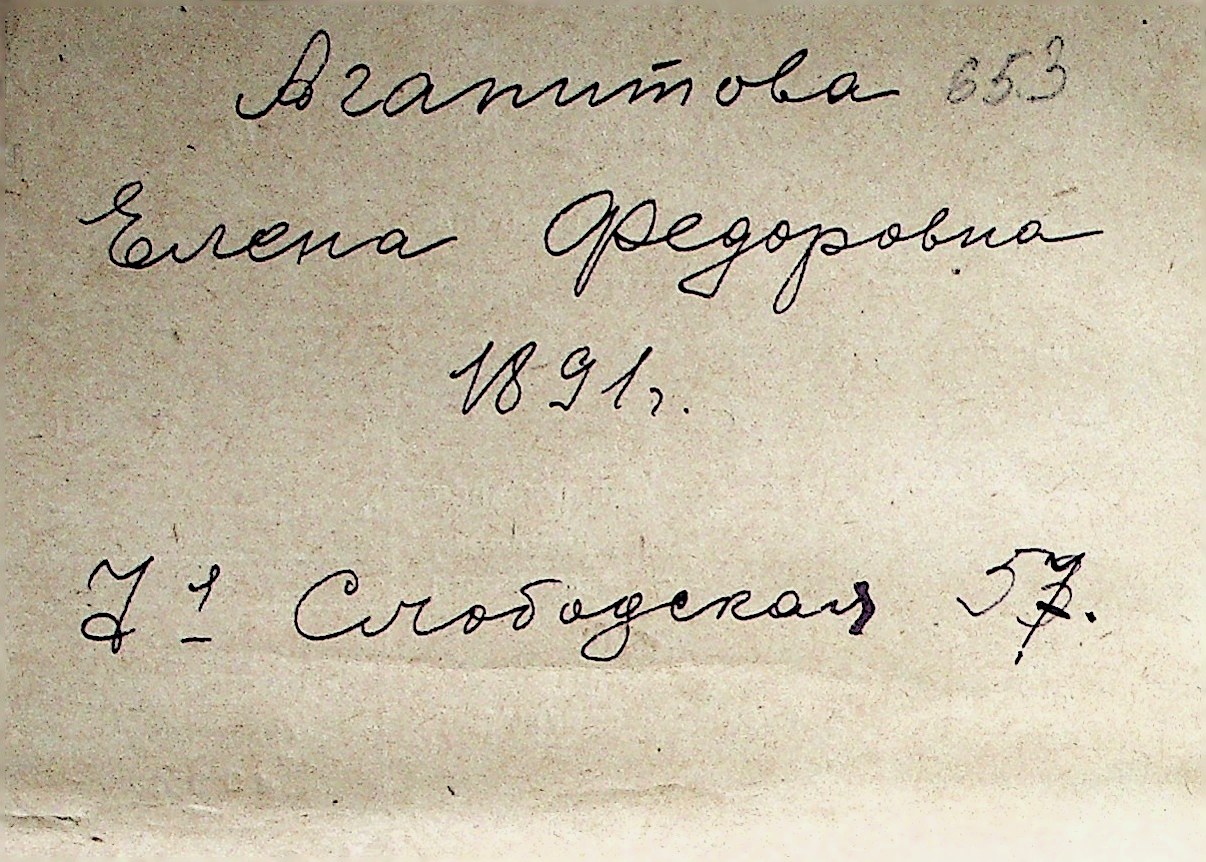 Агапитова 653
Елена Федоровна
1891г.
У 1 Слободская 57.